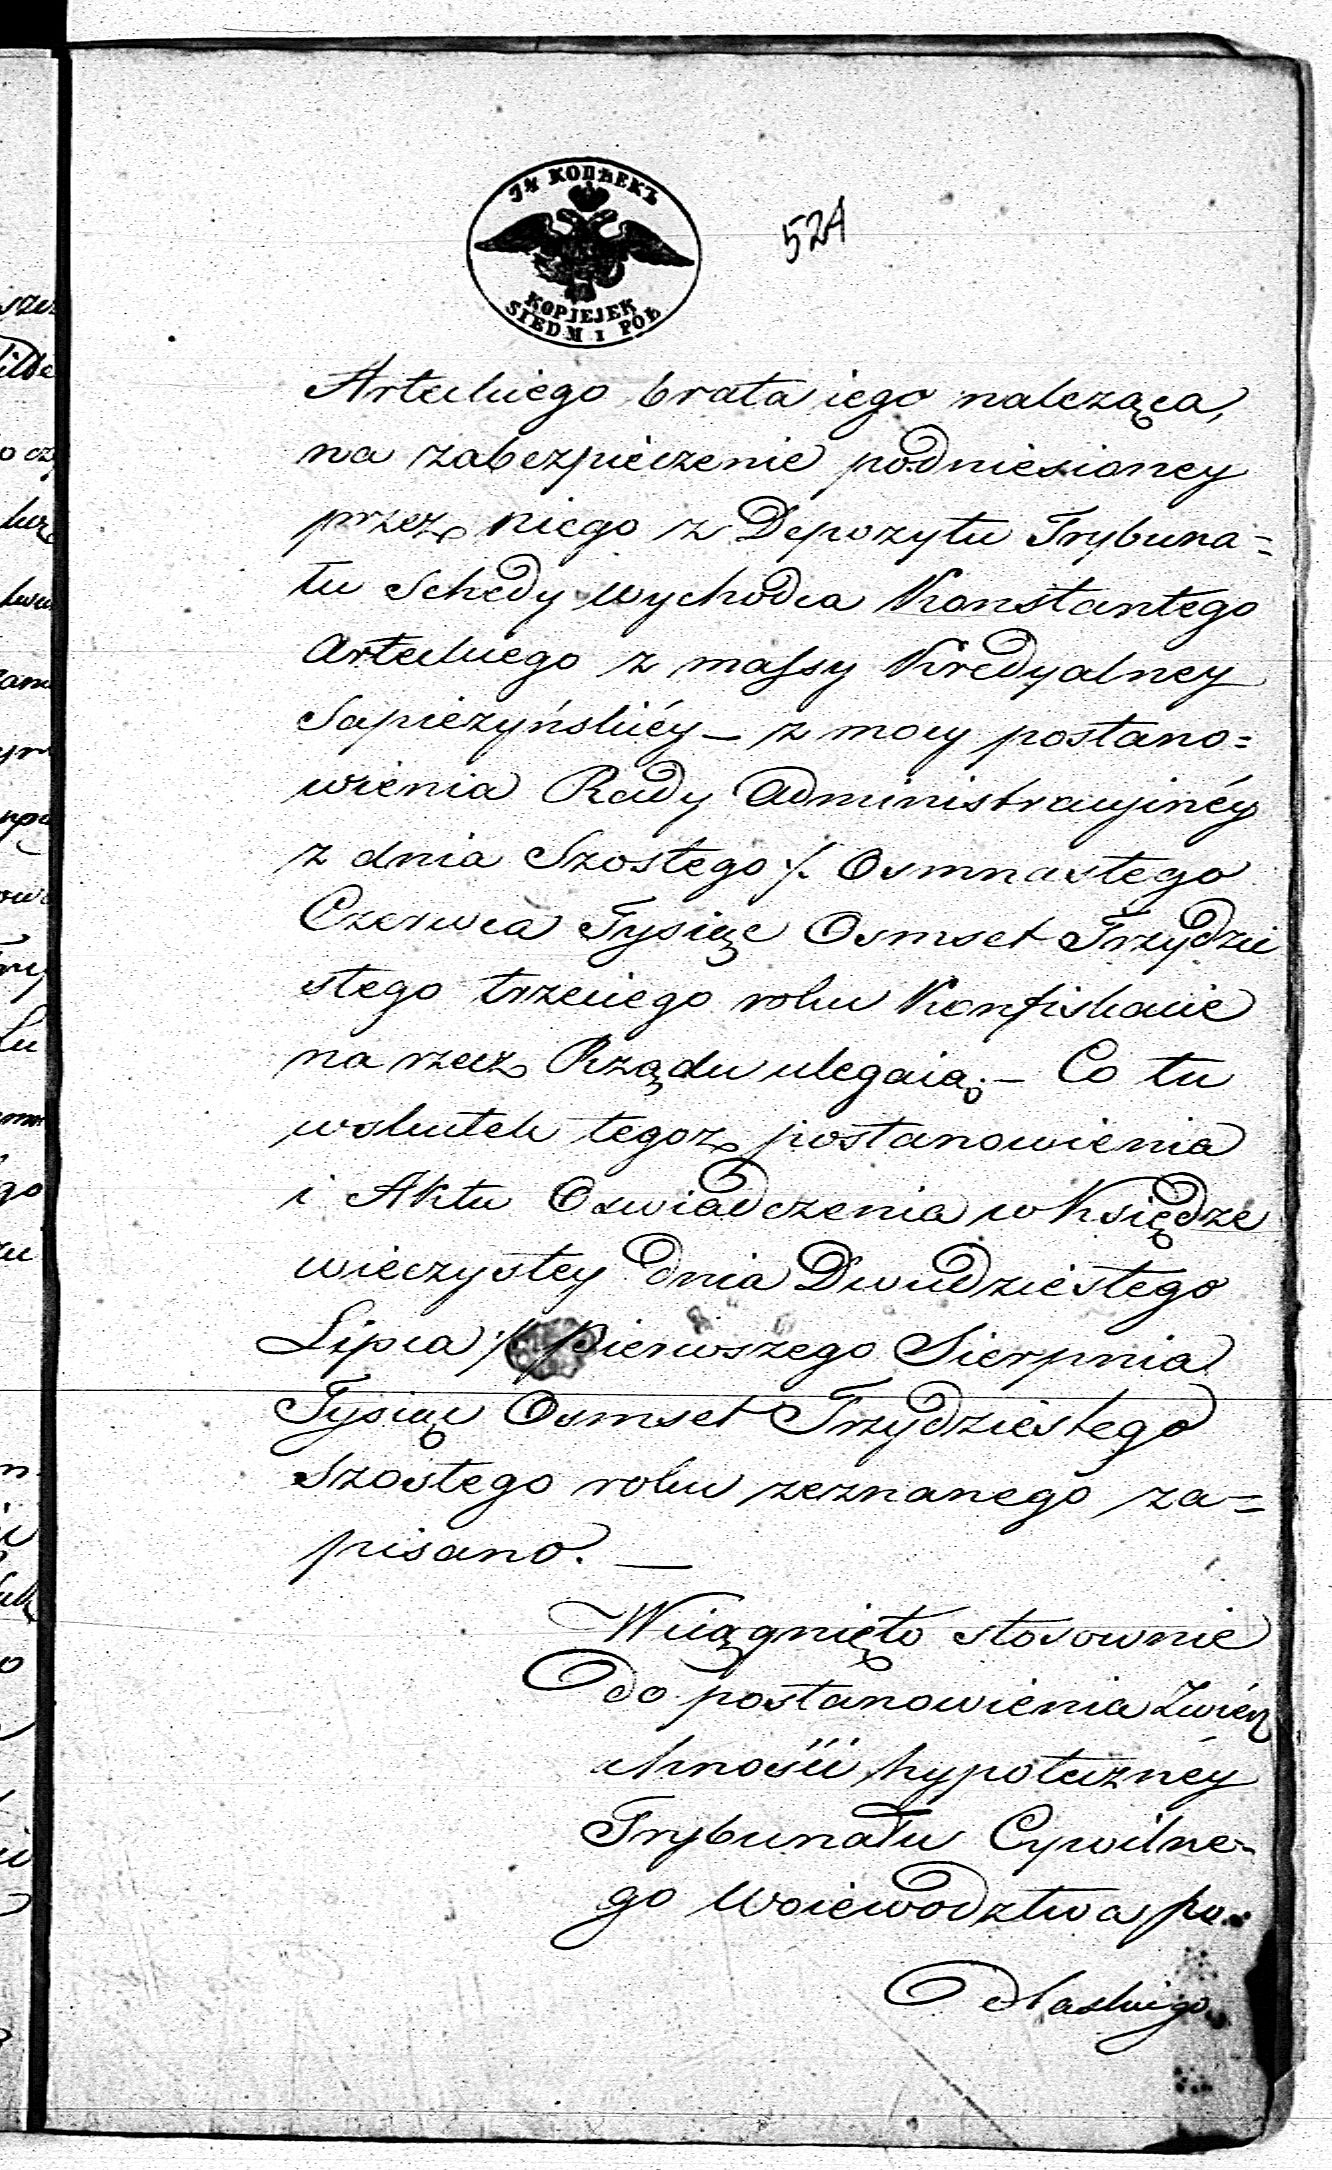 7½ КОПѢЕКЪ
KOPIEJEK
SIEDM I PÓŁ
524
Arteckiego brata iego należąca,
na zabezpieczenie podniesioney
przez niego z Depozytu Trybuna=
łu Schedy wychodca Konstantego
Arteckiego z massy Kredyalney
Sapieżyńskiéy – z mocy postano=
wienia Rady Administracyinéy
z dnia Szostego /. Osmnastego
Czerwca Tysiąc Osmset Trzydzie
stego trzeciego roku Konfiskacie
na rzecz Rządu ulegaią. – Co tu
wskutek tegoż postanowienia
i Aktu Oswiadczenia w Księdze
wieczystey dnia Dwudziestego
Lipca /. Pierwszego Sierpnia
Tysiąc Osmset Trzydziestego
szostego roku zeznanego za=
pisano. —
Wciągnięto stosownie
do postanowienia Zwierz
chności hypoteczney
Trybunału Cywilne=
go Woiewodztwa po=
dlaskiego